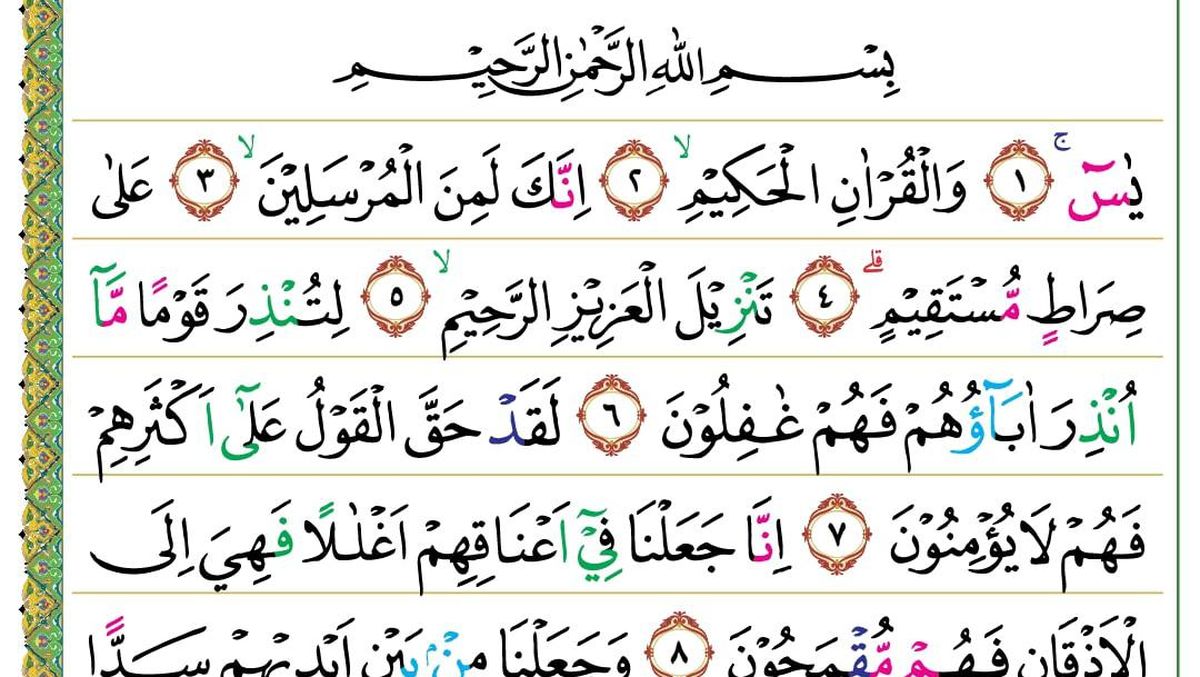 بِسْــــمِ اللّٰهِ الرَّحْمٰنِ الرَّحِيْــــمِ
يٰسۤ ۚ ١ وَالْقُرْاٰنِ الْحَكِيْمِۙ ٢ اِنَّكَ لَمِنَ الْمُرْسَلِيْنَۙ ٣ عَلٰى
صِرَاطٍ مُّسْتَقِيْمٍۗ ٤ تَنْزِيْلَ الْعَزِيْزِ الرَّحِيْمِۙ ٥ لِتُنْذِرَ قَوْمًا مَّآ
اُنْذِرَ اٰبَاۤؤُهُمْ فَهُمْ غٰفِلُوْنَ ٦ لَقَدْ حَقَّ الْقَوْلُ عَلٰٓى اَكْثَرِهِمْ
فَهُمْ لَا يُؤْمِنُوْنَ ٧ اِنَّا جَعَلْنَا فِيْٓ اَعْنَاقِهِمْ اَغْلٰلًا فَهِيَ اِلَى
الْاَذْقَانِ فَهُمْ مُّقْمَحُوْنَ ٨ وَجَعَلْنَا مِنْۢ بَيْنِ اَيْدِيْهِمْ سَدًّا